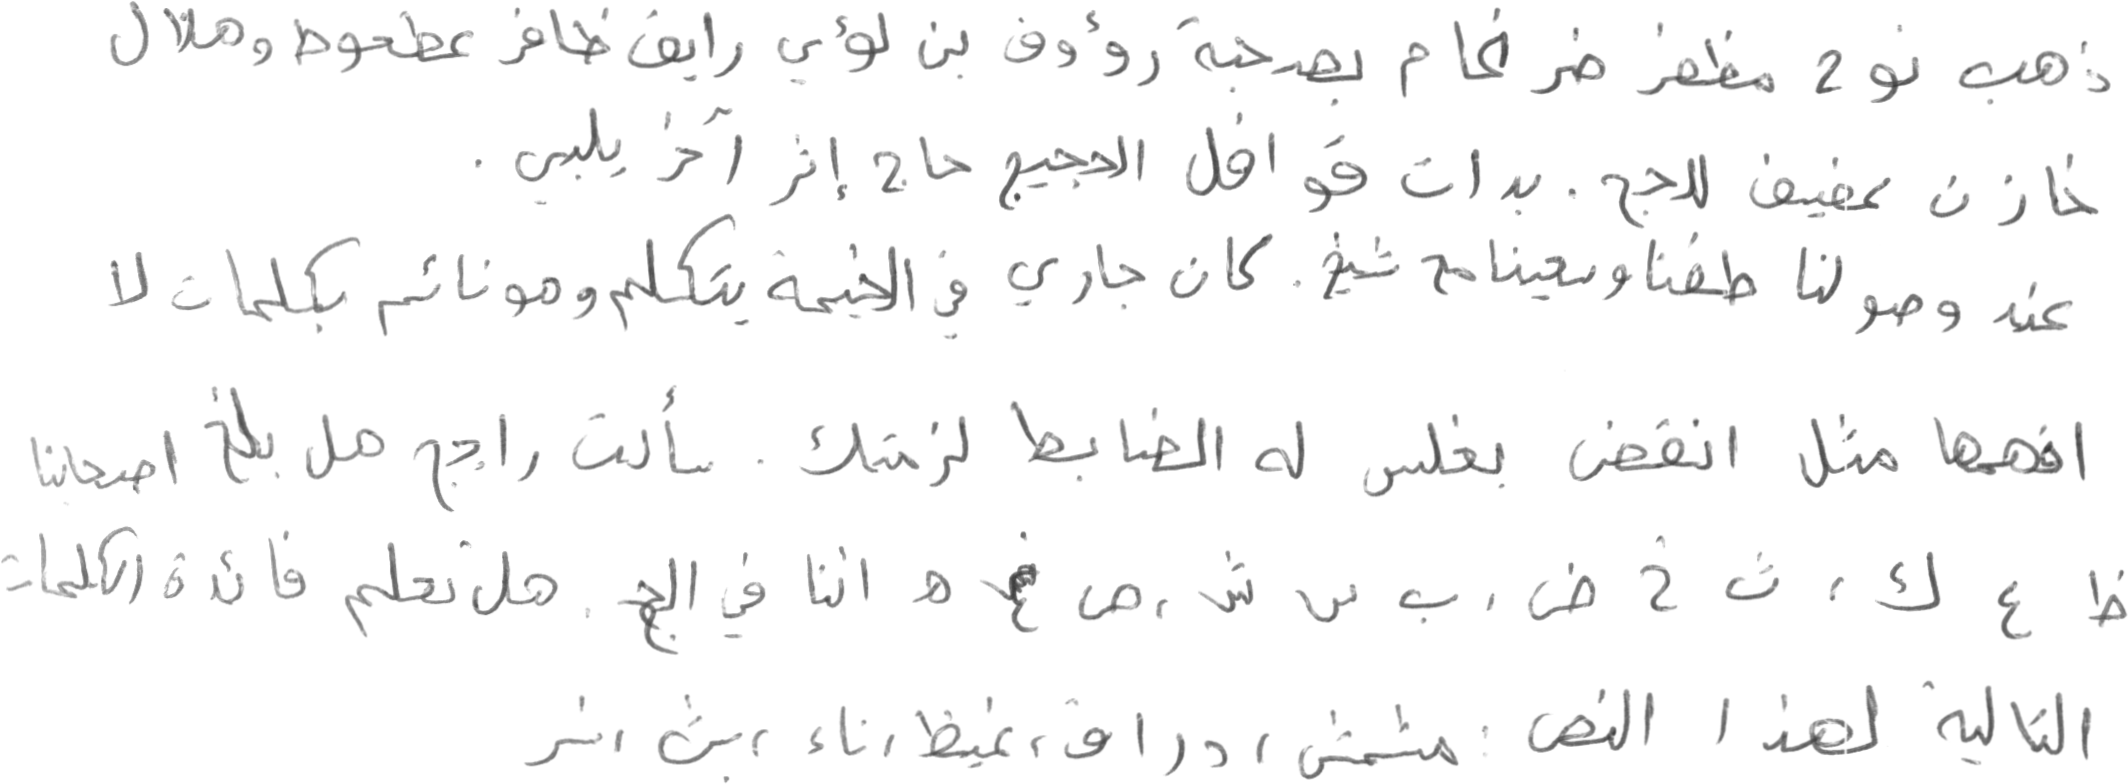 ذهب نوح مظفر ضرغام بصحبة رؤوف بن لؤي رايق ظافر عطعوط وهلال
خازن عفيف للحج. بدات قوافل الحجيج حاج إثر آخر يلبي.
عند وصولنا طفنا وسعينا مع شيخ. كان جاري في الخيمة يتكلم وهو نائم بكلمات لا
افهمها مثل انقض بغلس له الضابط لزمتك. سألت راجح هل بلغ اصحابنا
ظ ع ك، ث خ ض، ب س ش، ص غ ه اننا في الحج. هل تعلم فائدة الكلمات
التالية لهذا النص: مشمش، دراق، غيظ، ناء، بث، شر